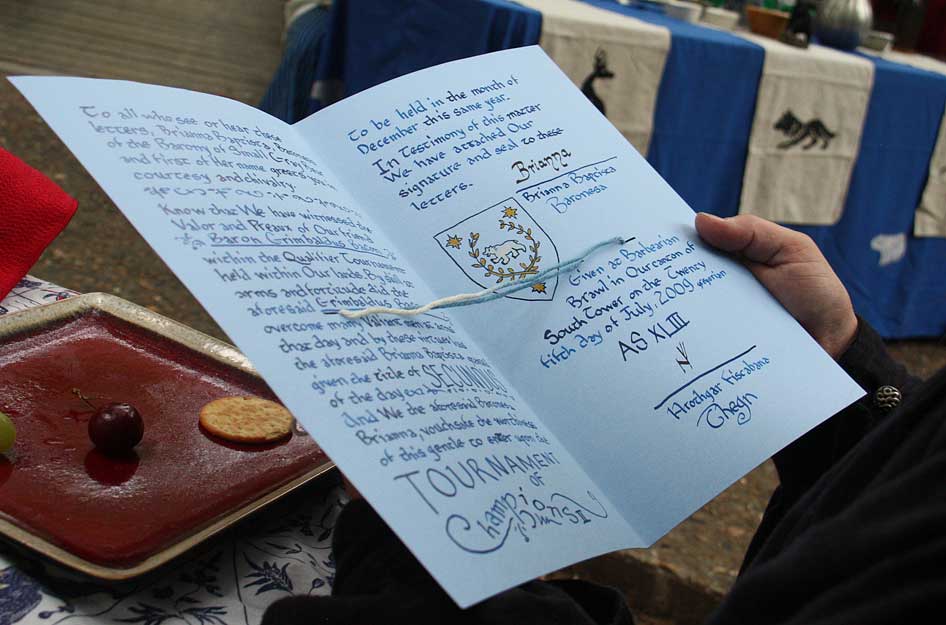 To all who see or hear these
letters, Brianna Baptista,
of the Barony of Small Gray Bear
and first of Her name greets you in
courtesy and chivalry.
Know that We have witnessed the
Valor and Preaux of Our friend
Baron Grimbaldus Bacon
within the Qualifier Tournament
held within Our lands By skill at
arms and fortitude did the
aforesaid Grimbaldus
overcome many Valiant
that day and by these
the aforesaid Brianna Baptista
given the title of SECUNDUS
of the day
And We the aforesaid Baronesa
Brianna, vouchsafe the worthiness
of this gentle to enter upon
TOURNAMENT
OF
Champions
To be held in the month of
December this same year.
In Testimony of this matter
We have attached Our
signature and seal to these
letters.
Brianna
Brianna Baptista
Baronesa
Given at Barbarian
Brawl in Our canton of
South Tower on the Twenty
fifth day of July 2009 gregorian
AS XLIII
Hrothgar Fiscabana
Thegn